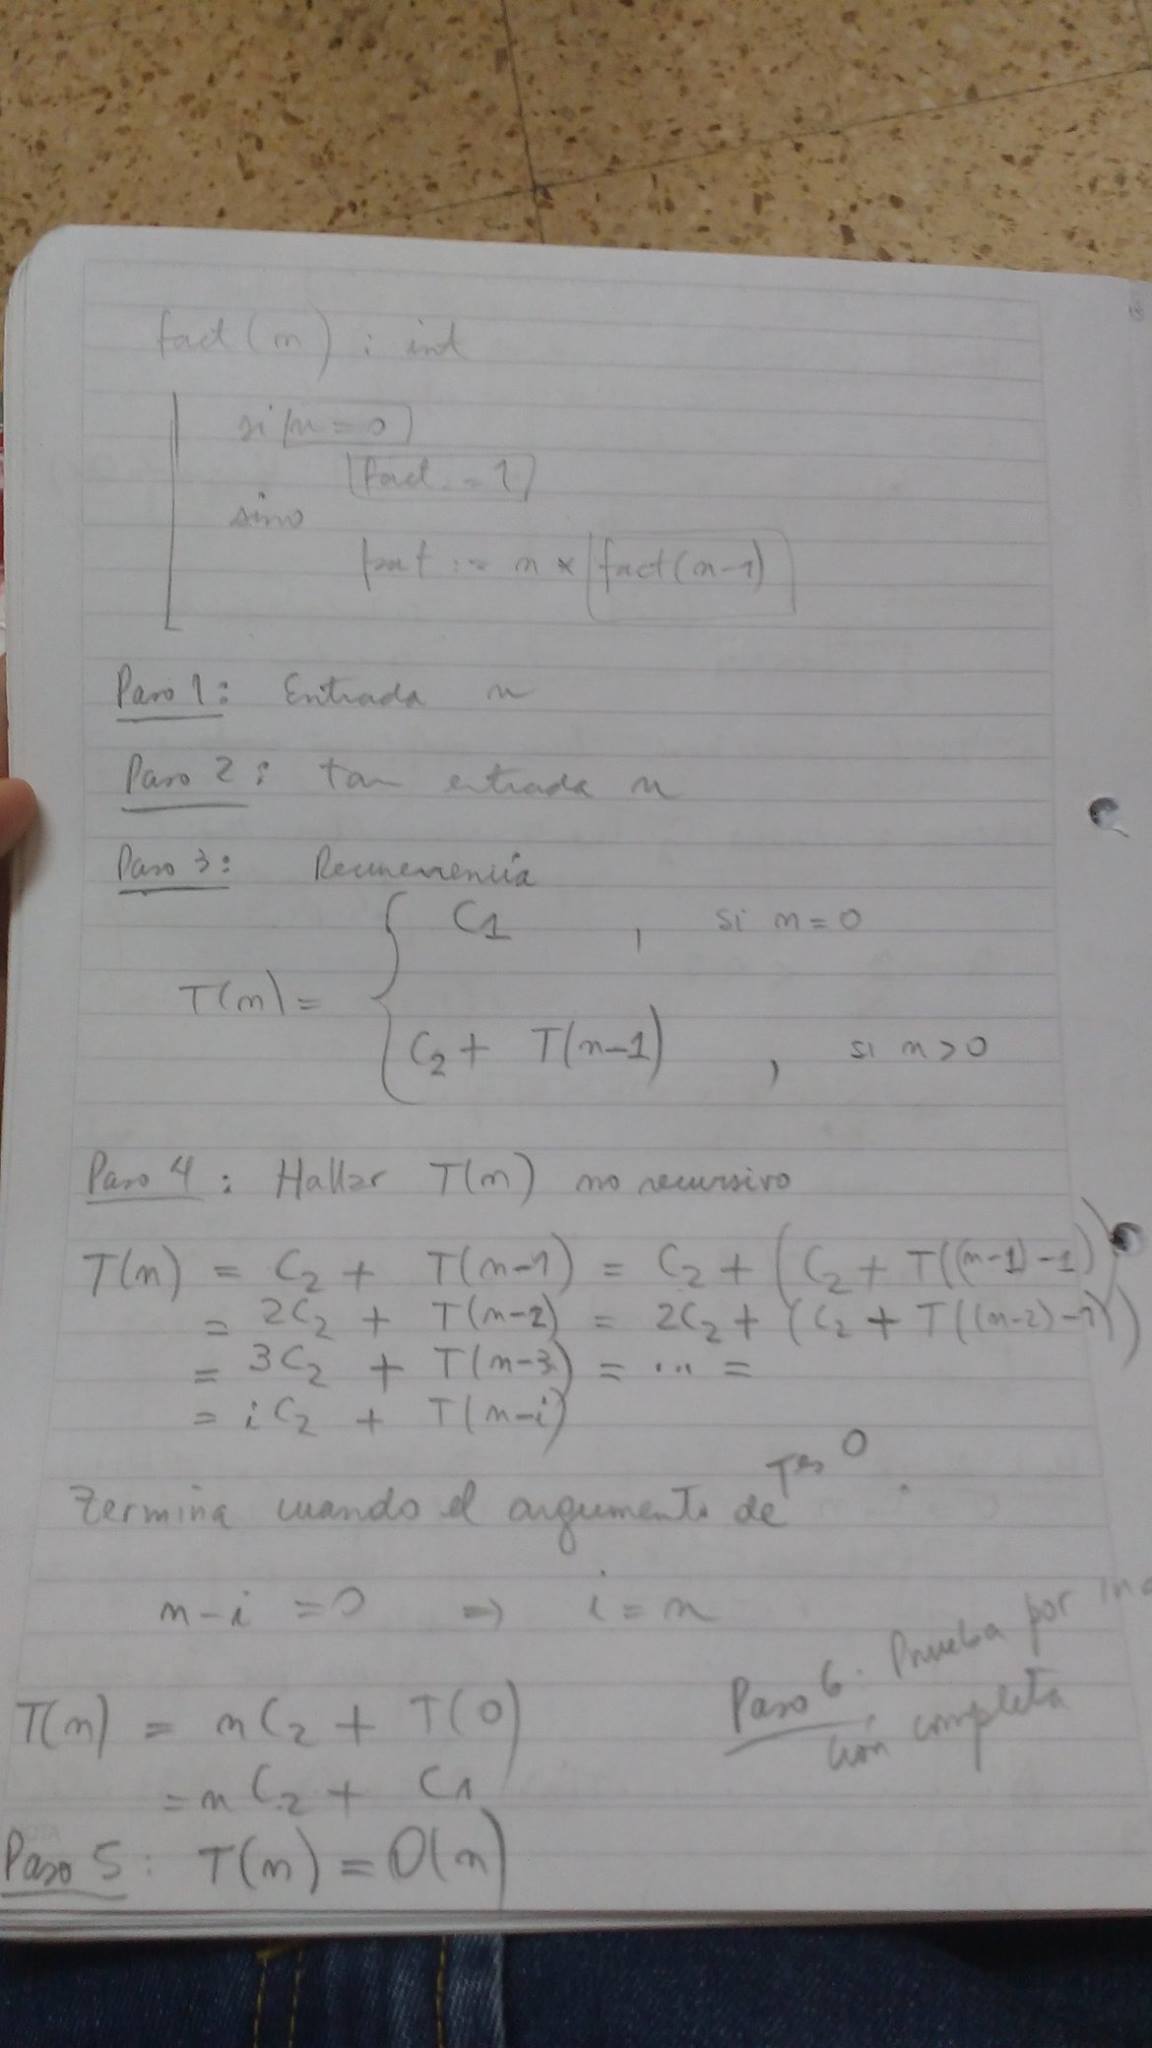 fact(n) : int
si n = 0
fact := 1
sino
fact := n * fact(n-1)
Paso 1: Entrada n
Paso 2: tam entrada n
Paso 3: Recurrencia
C1 , si n = 0
T(n) =
C2 + T(n-1) , si n > 0
Paso 4 : Hallar T(n) no recursivo
T(n) = C2 + T(n-1) = C2 + (C2 + T((n-1)-1))
= 2C2 + T(n-2) = 2C2 + (C2 + T((n-2)-1))
= 3C2 + T(n-3) = ... =
= iC2 + T(n-i)
Termina cuando el argumento de T es 0.
n-i = 0 => i = n
T(n) = nC2 + T(0)
= nC2 + C1
Paso 6. Prueba por induc
ción completa
Paso 5 : T(n) = O(n)